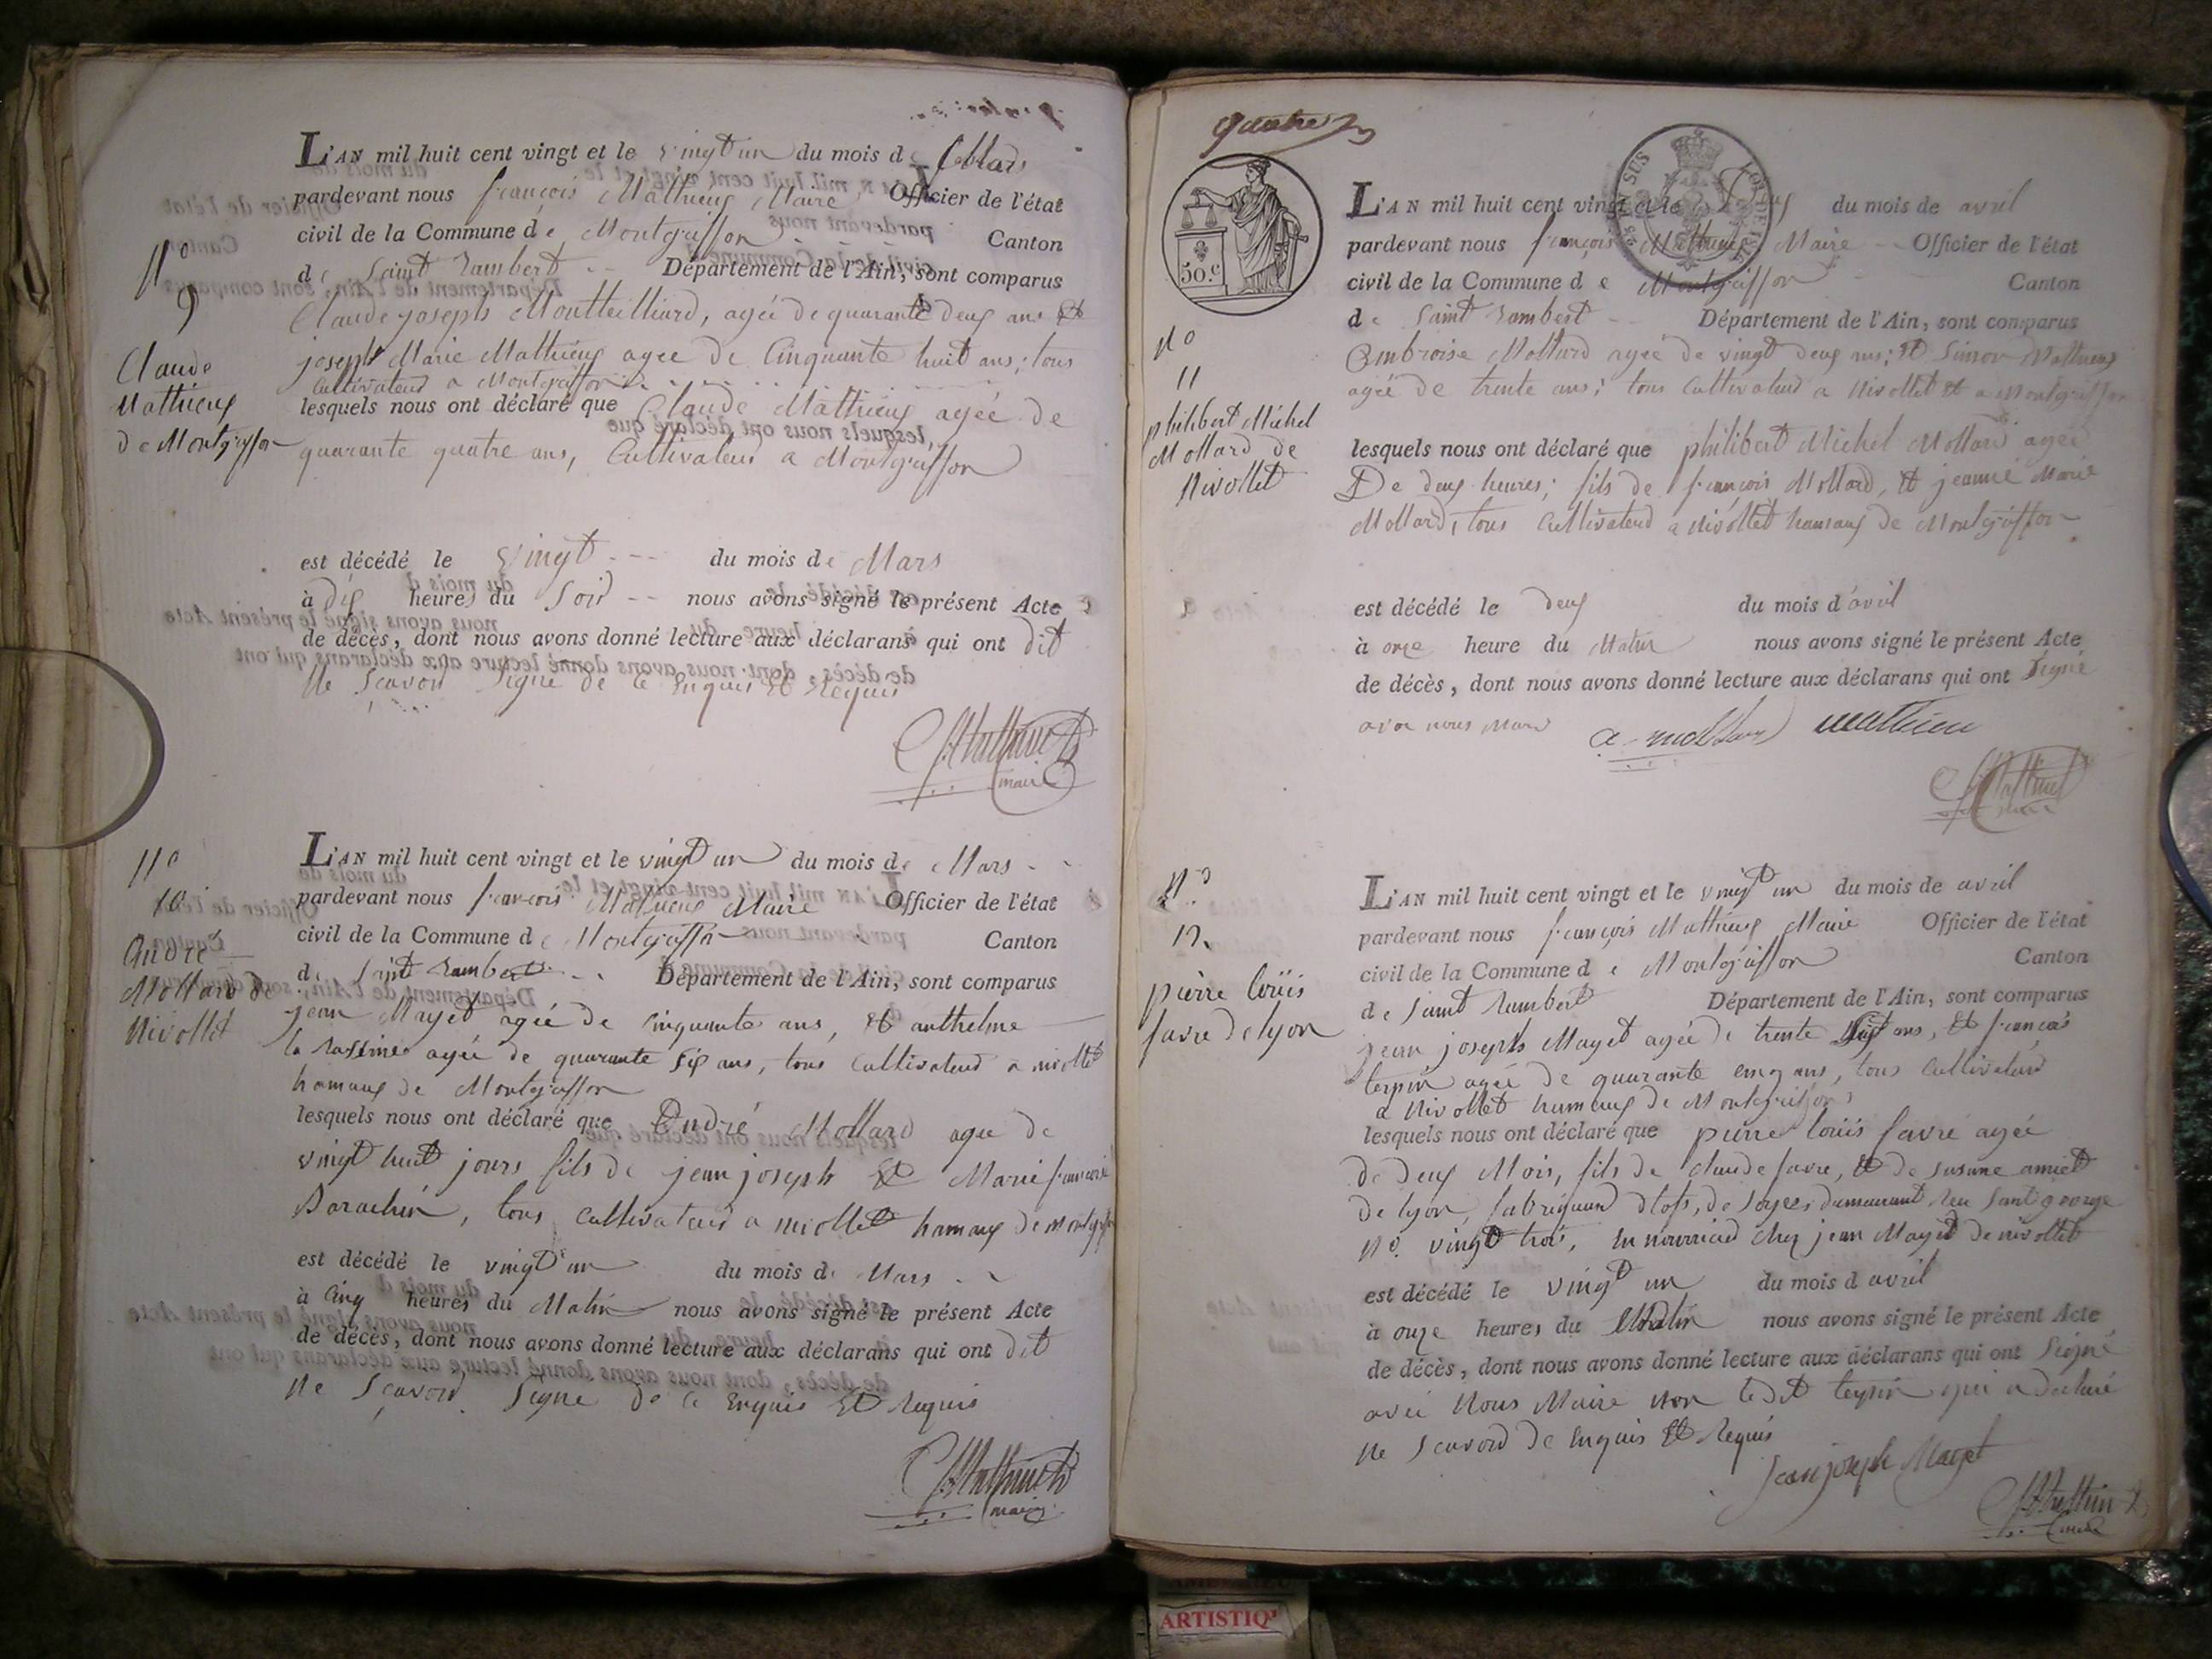 L'AN mil huit cent vingt et le vingt un du mois de Mars
pardevant nous françois Mathieux Maire Officier de l'état
civil de la Commune de Montgriffon Canton
de Saint Rambert Département de l'Ain, sont comparus
Claude joseph Montteilliard, agéé de quarante deux ans et
joseph Marie Mathieux agee de Cinquante huit ans; tous
Cultivateurs a Montgriffon
lesquels nous ont déclaré que Claude Mathieux agéé de
quarante quatre ans, Cultivateur a Montgriffon
est décédé le vingt du mois de Mars
à dix heures du Soir nous avons signé le présent Acte
de décès, dont nous avons donné lecture aux déclarans qui ont dit
Ne Scavoir Signé de ce Enquis et Requis
maire
N°
9
Claude
Mathieux
de Montgriffon
L'AN mil huit cent vingt et le vingt un du mois de Mars
pardevant nous françois Mathieux Maire Officier de l'état
civil de la Commune de Montgriffon Canton
de Saint Rambert Département de l'Ain, sont comparus
jean Mayet agéé de Cinquante ans, et anthelme
agéé de quarante six ans, tous Cultivateurs a nivollet
hamaux de Montgriffon
lesquels nous ont déclaré que André Mollard agee de
vingt huit jours fils de jean joseph et Marie françoise
Barachin, tous Cultivateurs a nivollet hamaux de Montgriffon
est décédé le vingt un du mois de Mars
à Cinq heures du Matin nous avons signé le présent Acte
de décès, dont nous avons donné lecture aux déclarans qui ont dit
Ne Sçavoir Signé de ce Enquis et Requis
maire
N°
10
André
Mollard de
Nivollet
quatre
50.c
L'AN mil huit cent vingt et le deux du mois de avril
pardevant nous françois Mathieux Maire Officier de l'état
civil de la Commune de Montgriffon Canton
de Saint Rambert Département de l'Ain, sont comparus
Ambroise Mollard agéé de vingt deux ans; et Simon Mathieux
agéé de trente ans; tous Cultivateurs a Nivollet et a Montgriffon
lesquels nous ont déclaré que philibert Michel Mollard agéé
De deux heures; fils de françois Mollard, et jeanne Marie
Mollard, tous Cultivateurs a Nivollet hamaux de Montgriffon
est décédé le deux du mois d'avril
à onze heure du Matin nous avons signé le présent Acte
de décès, dont nous avons donné lecture aux déclarans qui ont Signé
avec nous Maire
a mollard mathieu
N°
11
philibert Michel
Mollard de
Nivollet
L'AN mil huit cent vingt et le vingt un du mois de avril
pardevant nous françois Mathieux Maire Officier de l'état
civil de la Commune de Montgriffon Canton
de Saint Rambert Département de l'Ain, sont comparus
jean joseph Mayet agéé de trente ans, et françois
agéé de quarante cinq ans, tous Cultivateurs
a Nivollet hamaux de Montgriffon
lesquels nous ont déclaré que pierre loüis favre agéé
de deux Mois, fils de claude favre, et de susanne amiet
de lyon, fabriquand de Soyes demeurant Reu Saint george
N° vingt trois, En nourricie chez jean Mayet de nivollet
est décédé le vingt un du mois d avril
à onze heures du Matin nous avons signé le présent Acte
de décès, dont nous avons donné lecture aux déclarans qui ont Signé
avec Nous Maire Non ledit qui a declaré
Ne Scavoir de Enquis et Requis
Jean joseph Mayet
N°
12
pierre loüis
favre de lyon
ARTISTIQ